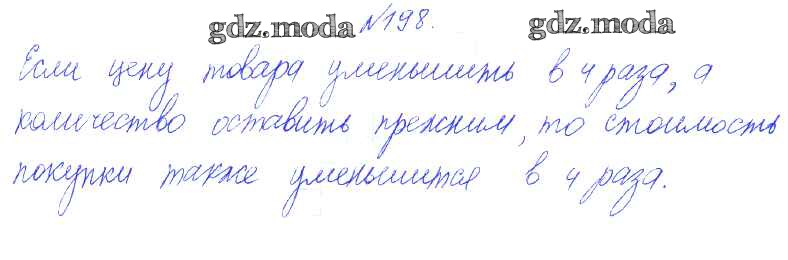 gdz.moda №198. gdz.moda
Если цену товара уменьшить в 4 раза, а
количество оставить прежним, то стоимость
покупки также уменьшится в 4 раза.